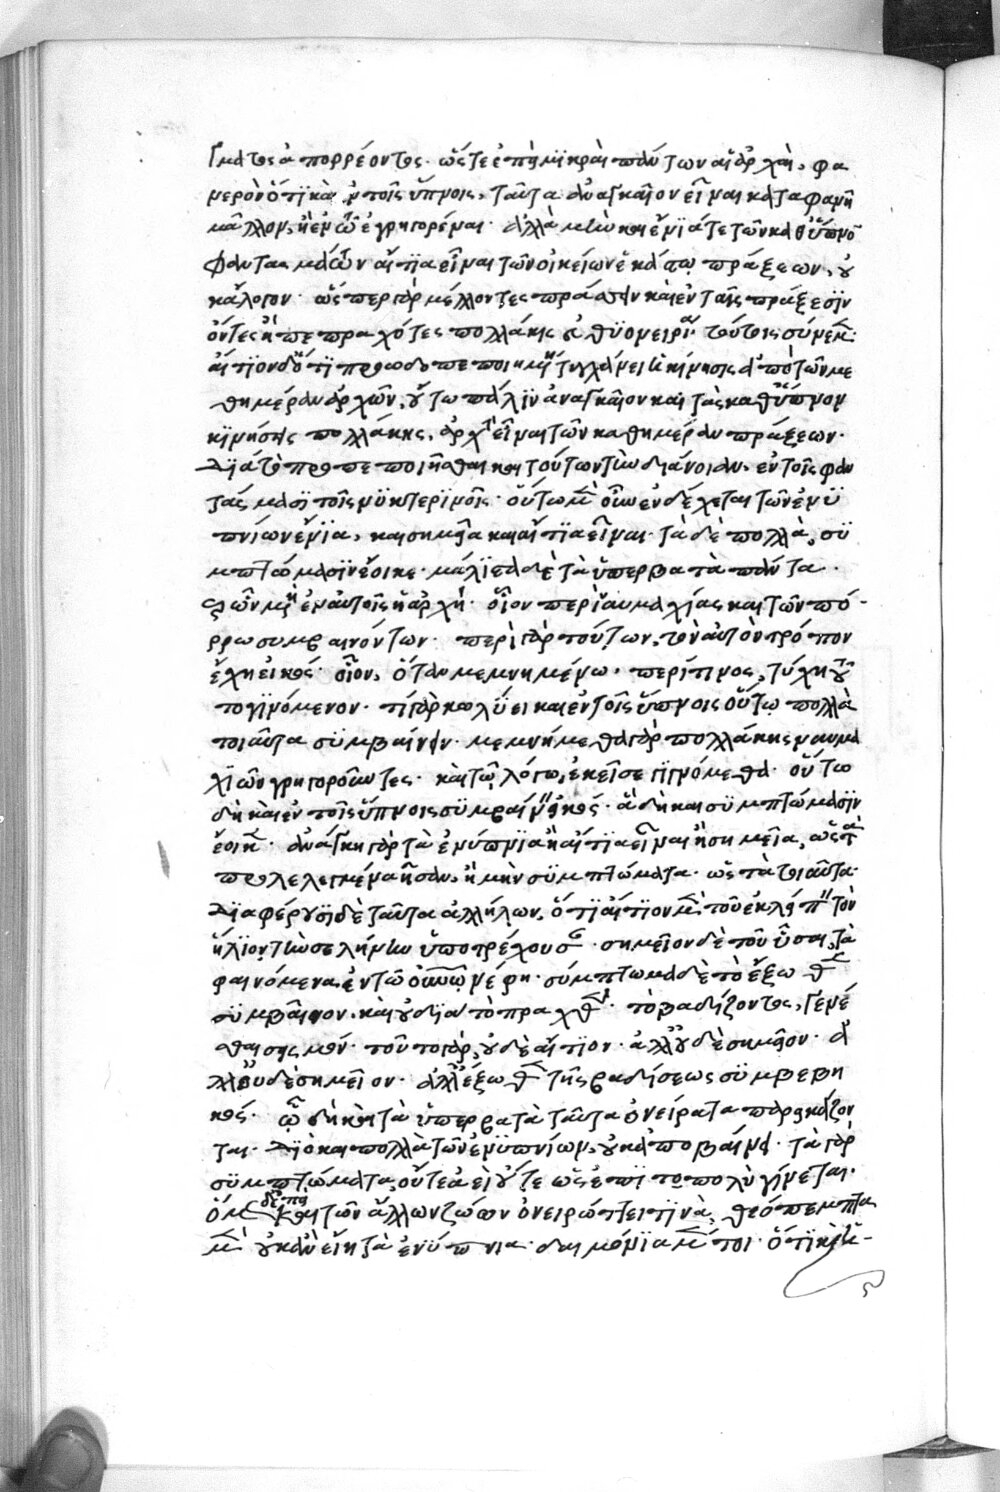 γματος ἀπορρέοντος· ὥστε ἐπεὶ μικραὶ πάντων αἱ ἀρχαὶ, φα
νερὸν ὅτι καὶ ἐν τοῖς ὕπνοις, ταῦτα ἀναγκαῖον εἶναι καταφανῆ
μᾶλλον, ἢ ἐν τῶ ἐγρηγορέναι· ἀλλὰ μὴν καὶ ἔνιά γε τῶν καθ' ὕπνον
φαντασμάτων αἴτια εἶναι τῶν οἰκείων ἑκάστω πράξεων, οὐ
κ ἄλογον· ὥσπερ γὰρ μέλλοντες πράττειν καὶ ἐν ταῖς πράξεσιν
ὄντες ἢ πεπραχότες πολλάκις εὐθυονειρίαν τούτοις σύνεσμεν·
αἴτιον δ' ὅτι προωδοπεποιημένη τυγχάνει ἡ κίνησις ἀπὸ τῶν με
θημέραν ἀρχῶν, οὕτω πάλιν ἀναγκαῖον καὶ τὰς καθ' ὕπνον
κινήσεις πολλάκις, ἀρχὴν εἶναι τῶν καθημέραν πράξεων·
διὰ τὸ προπεποιῆσθαι καὶ τούτων τὴν διάνοιαν, ἐν τοῖς φαν
τάσμασι τοῖς νυκτερινοῖς· οὕτω μὲν οὖν ἐνδέχεται τῶν ἐνυ
πνίων ἔνια, καὶ σημεῖα καὶ αἴτια εἶναι· τὰ δὲ πολλὰ, συ
μπτώμασιν ἔοικε· μάλιστα δὲ τὰ ὑπερβατὰ πάντα·
ὧν μὴ ἐν αὐτοῖς ἡ ἀρχή· οἷον περὶ ναυμαχίας καὶ τῶν πό-
ρρω συμβαινόντων· περὶ γὰρ τούτων, τὸν αὐτὸν τρόπον
ἔχει εἰκὸς· οἷον, ὅταν μεμνημένω· περί τινος, τύχη τοῦ
το γινόμενον· τί γὰρ κωλύει καὶ ἐν τοῖς ὕπνοις οὕτω πολλὰ
τοιαῦτα συμβαίνειν· μεμνήμεθα γὰρ πολλάκις ναυμα
χιῶν γρηγοροῦντες· καὶ τῶ λόγω, ἐκεῖσε γιγνόμεθα· οὕτω
δὴ καὶ ἐν τοῖς ὕπνοις συμβαίνειν εἰκός· ἃ δὴ καὶ συμπτώμασιν
ἔοικε· ἀνάγκη γὰρ τὰ ἐνύπνια ἢ αἴτια εἶναι ἢ σημεῖα, ὥσπερ
προλελεγμένα ἦσαν, ἢ μὴν συμπτώματα· ὡς τὰ τοιαῦτα·
διαφέρουσι δὲ ταῦτα ἀλλήλων, ὅτι αἴτιον μὲν τοῦ ἐκλείπειν τὸν
ἥλιον, τὴν σελήνην ὑποτρέχουσαν· σημεῖον δὲ τοῦ ὗσαι, τὰ
φαινόμενα ἐν τῶ οὐρανῶ νέφη· σύμπτωμα δὲ τὸ ἔξωθεν
συμβαῖνον· καὶ οὐ διὰ τὸ πραχθὲν· τὸ βαδίζοντος, γενέ
σθαι σεισμόν· τοῦτο γὰρ, οὐδὲ αἴτιον· ἀλλ' οὐδὲ σημεῖον· ἀ
λλ' οὐδὲ σημεῖον· ἀλλ' ἔξωθεν τῆς βαδίσεως συμβεβη
κός· ὧ δὴ καὶ τὰ ὑπερβατὰ ταῦτα ὀνείρατα παρεικάζον
ται· διὸ καὶ πολλὰ τῶν ἐνυπνίων, οὐκ ἀποβαίνει· τὰ γὰρ
συμπτώματα, οὔτε ἀεὶ οὔτε ὡς ἐπὶ τὸ πολὺ γίνεται·
ὅλως δὲ ἐπεὶ καὶ τῶν ἄλλων ζώων ὀνειρώττει τινὰ, θεόπεμπτα
μὲν οὐκ ἂν εἴη τὰ ἐνύπνια· δαιμόνια μέντοι· ὅτι καὶ ἡ-